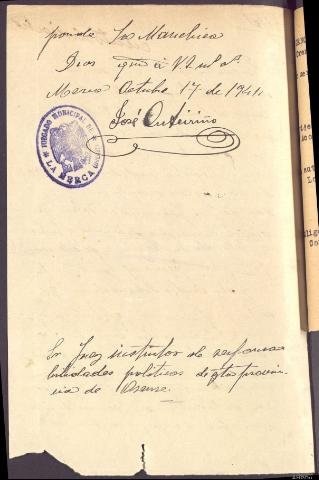 Dios que a V.
Merca Octubre 17 de 1941.
José Outeiriño
JUZGADO MUNICIPAL DE
LA MERCA
Sr Juez instructor de responsa
bilidades politicas de esta provin
cia de Orense.